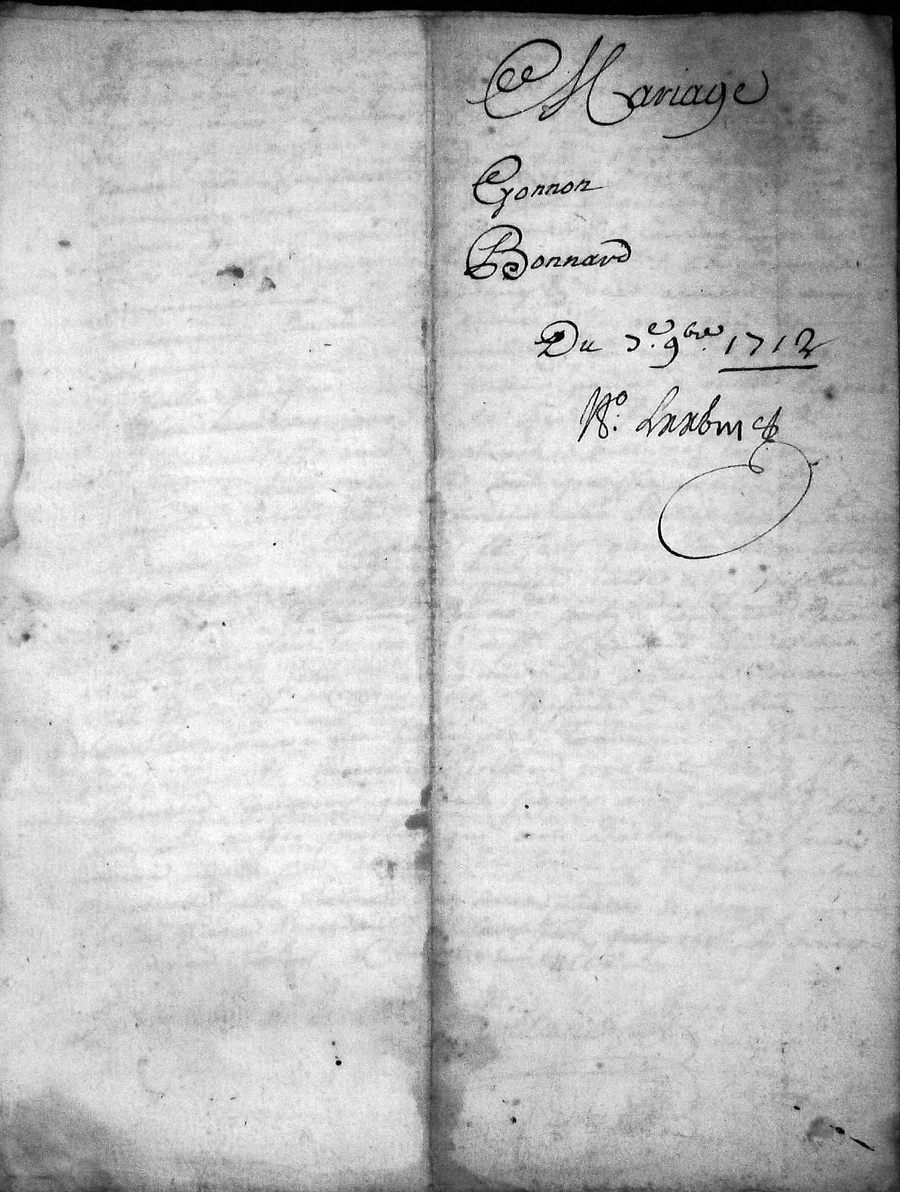 Mariage
Gonnon
Bonnard
Du 7e. 9bre. 1712
No.